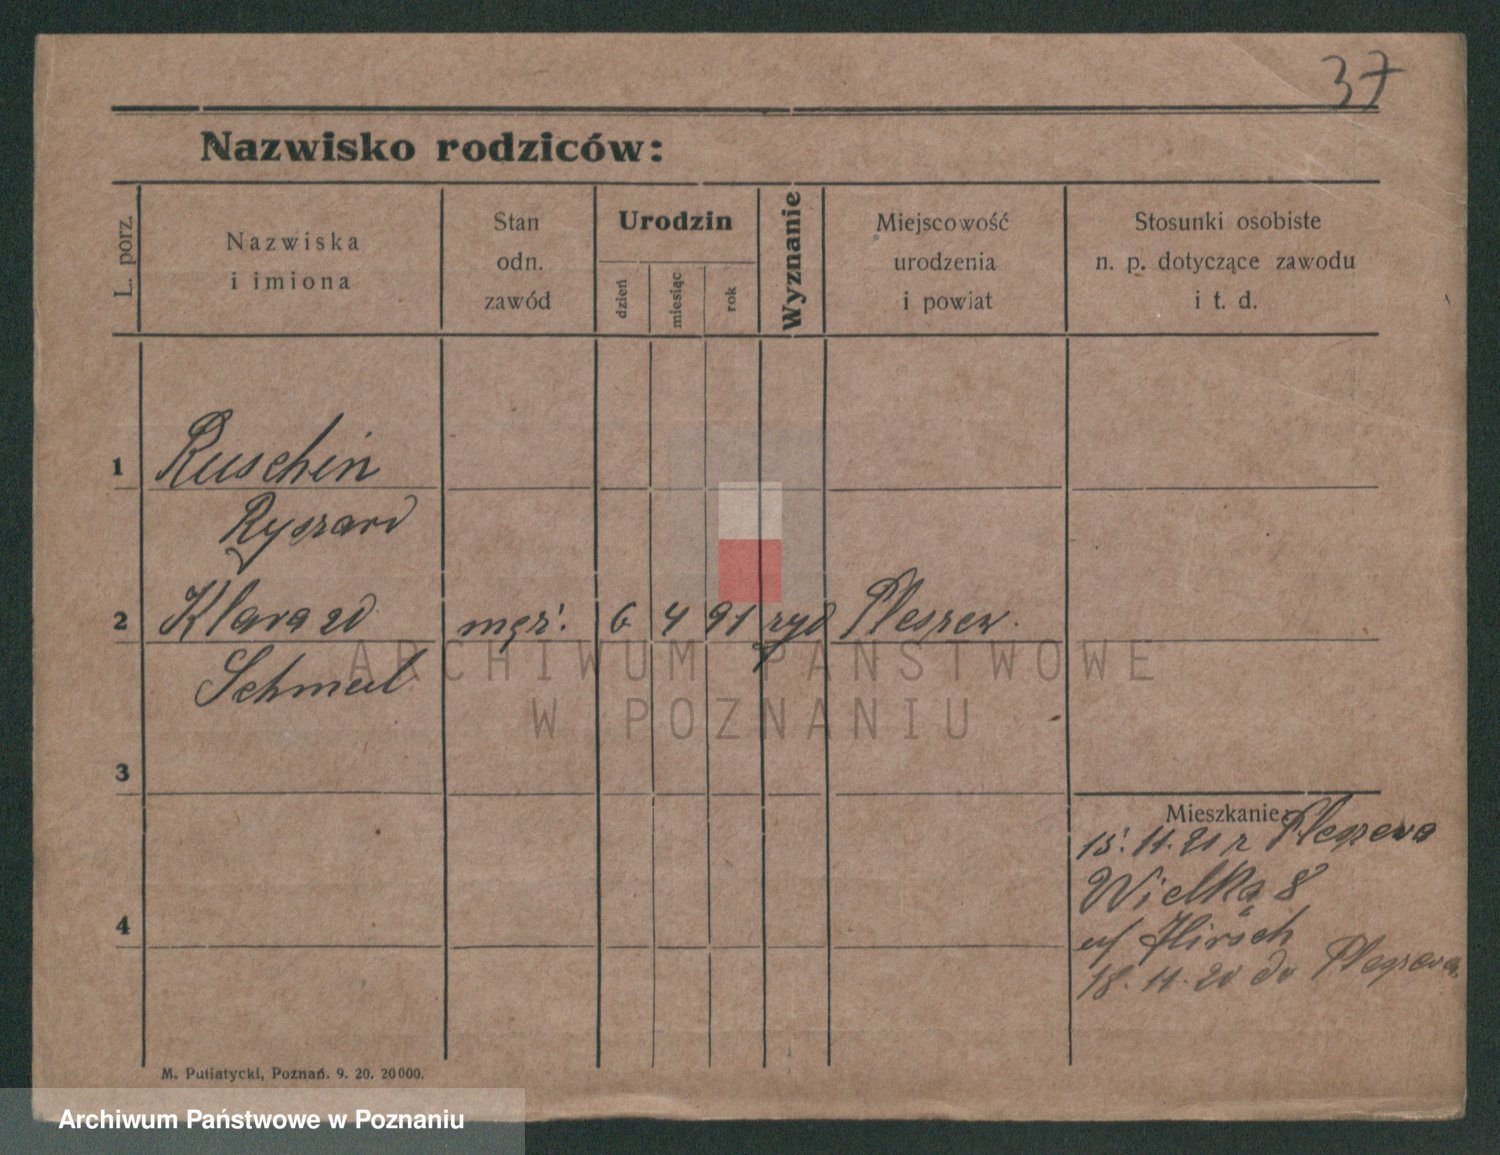 37
Nazwisko rodziców:
L. porz.
Nazwiska
i imiona
Stan
odn.
zawód
Urodzin
dzień
miesiąc
rok
Wyznanie
Miejscowość
urodzenia
i powiat
Stosunki osobiste
n. p. dotyczące zawodu
i t. d.
1 Ruschin
Ryszard
2 Klara zd 6 4 91 żyd Pleszew.
Schmul
ARCHIWUM PAŃSTWOWE
W POZNANIU
3
Mieszkanie:
15. 11. 20 z Pleszewa
Wielka 8
4
u/ Hirsch
18. 11. 20 do Pleszewa
M. Putiatycki, Poznań. 9. 20. 20000.
Archiwum Państwowe w Poznaniu